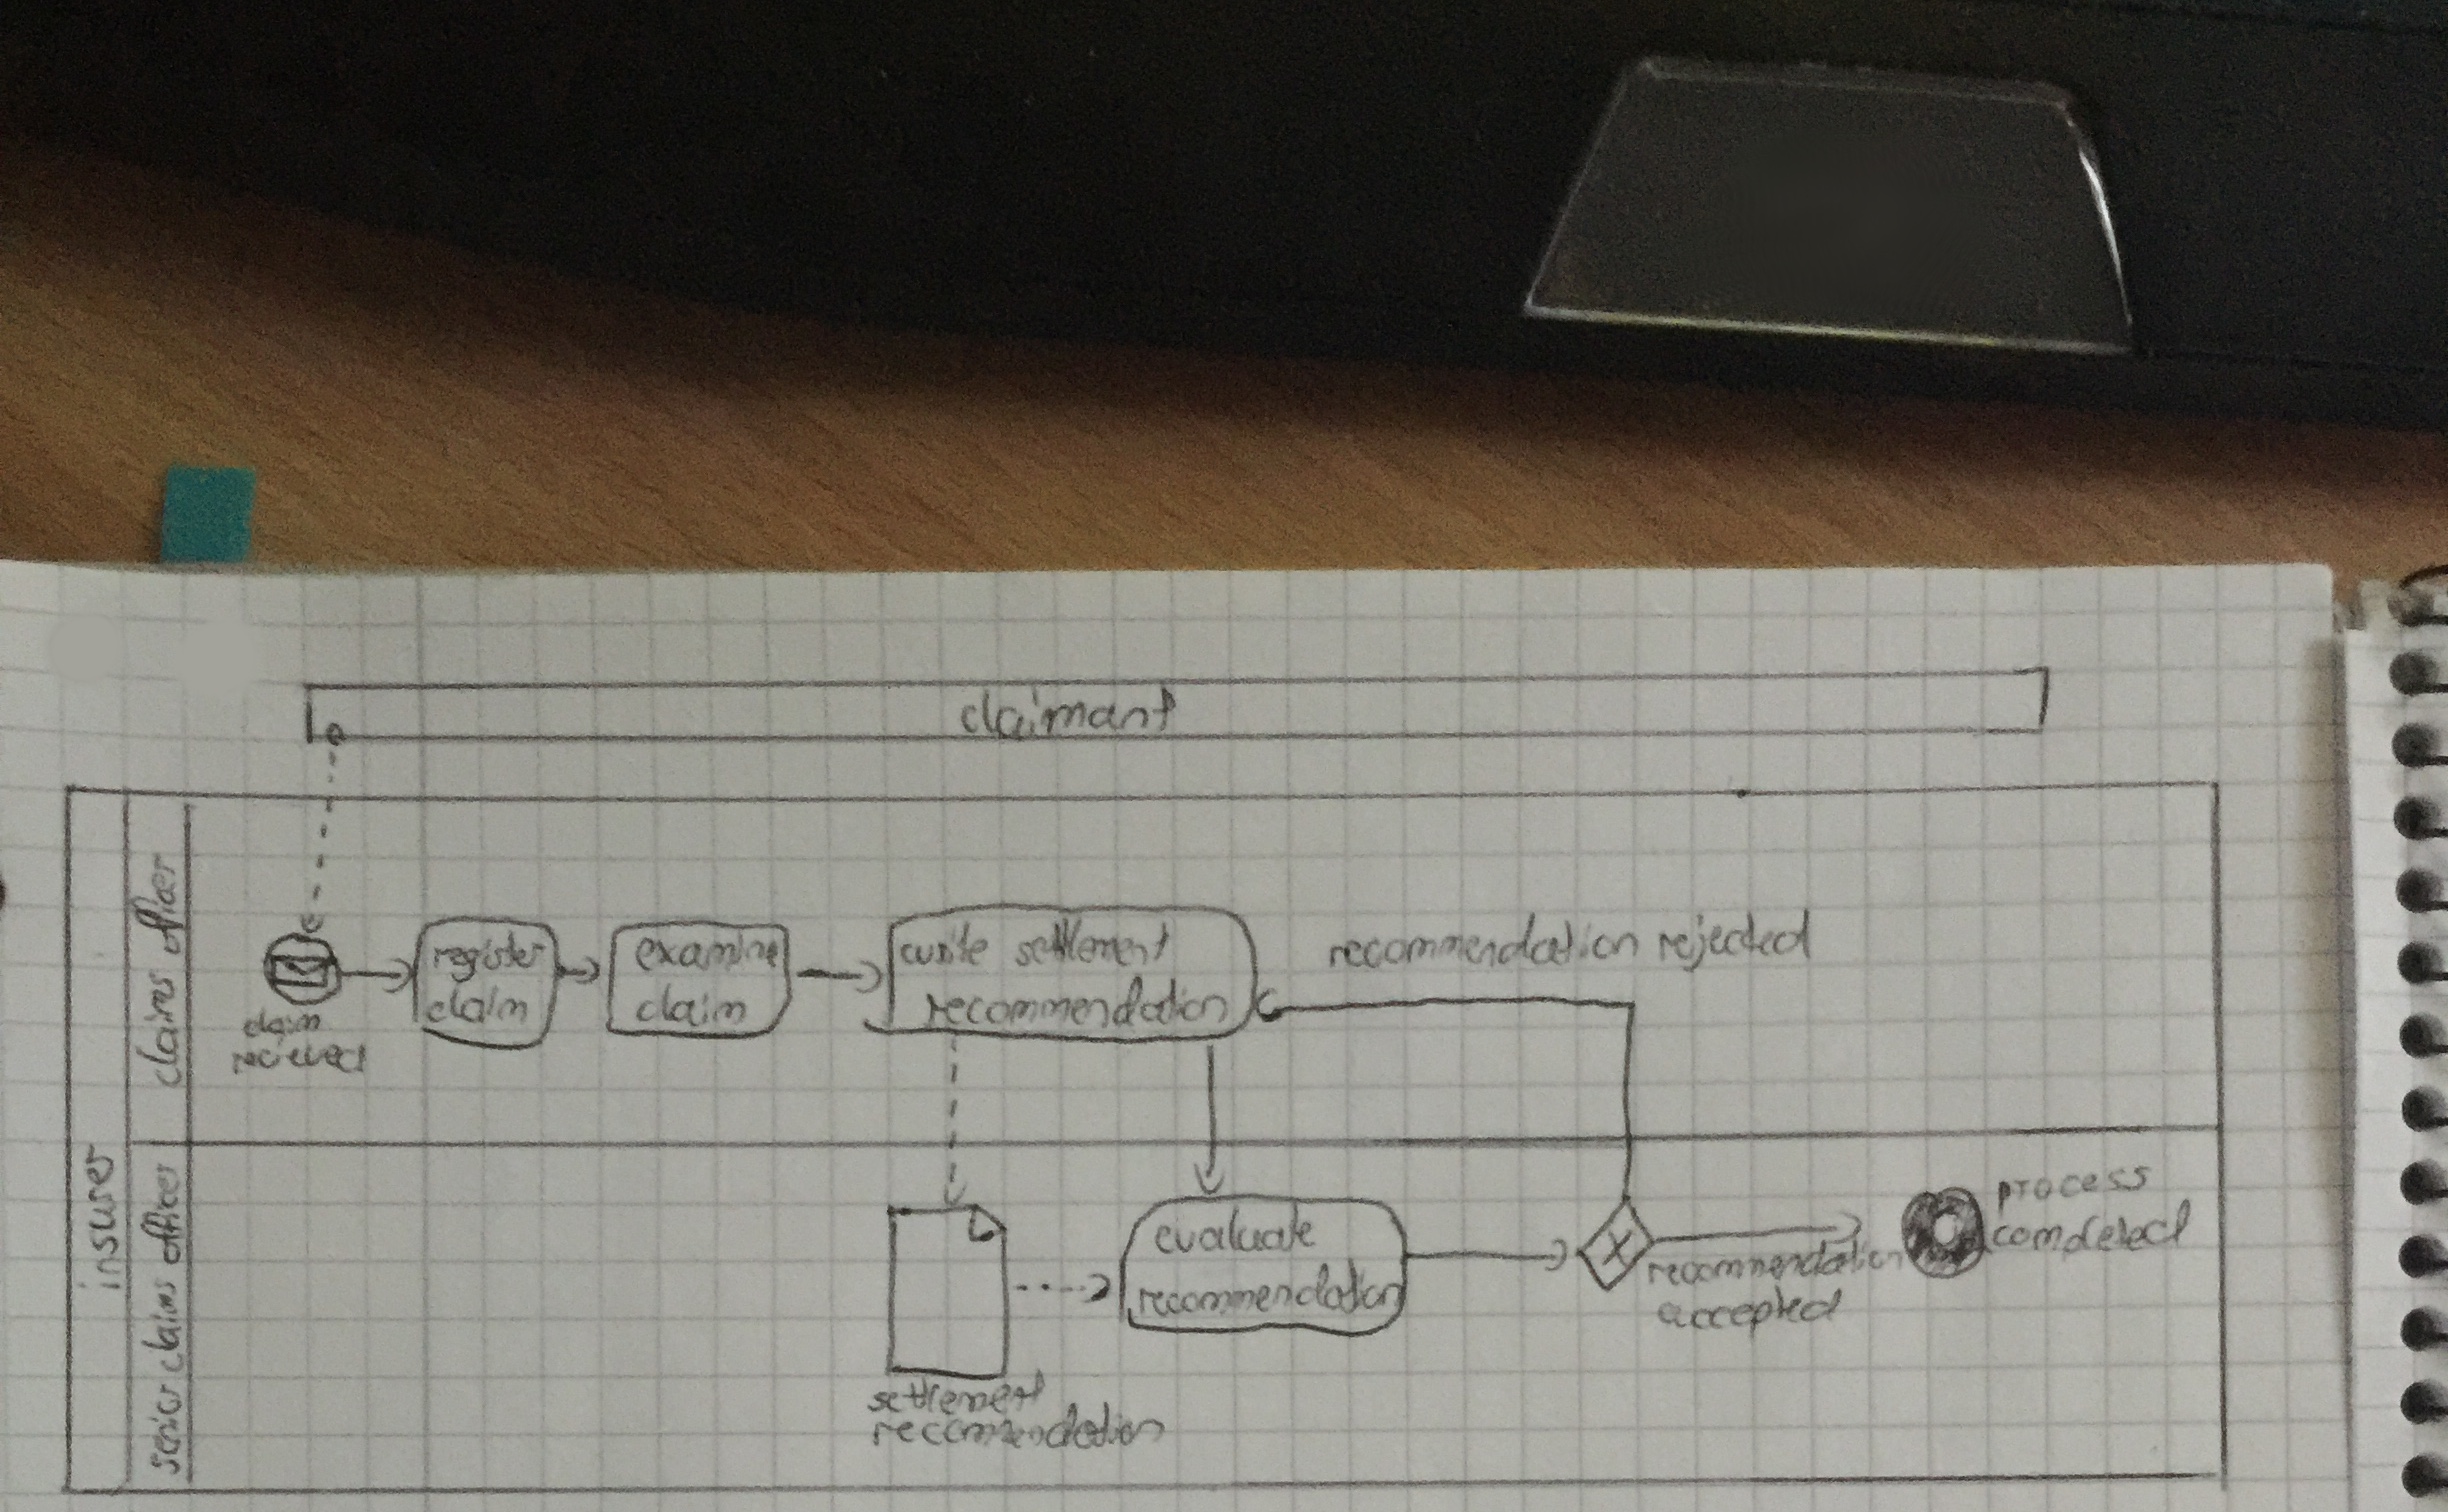 claimant
insurer
claims officer
claim
recieved
register
claim
examine
claim
write settlement
recommendation
recommendation rejected
senior claims officer
settlement
recommendation
evaluate
recommendation
X
recommendation
accepted
process
completed